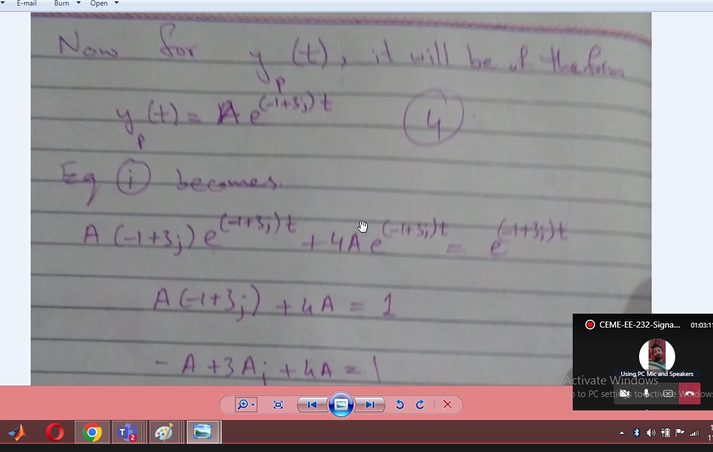 E-mail Burn Open
Now for yp(t), it will be of the form
yp(t) = A e^(-1+3j)t (4)
Eq (i) becomes.
A(-1+3j)e^(-1+3j)t + 4Ae^(-1+3j)t = e^(-1+3j)t
A(-1+3j) + 4A = 1
-A+3Aj+4A=1
CEME-EE-232-Signa... 01:03:11
Using PC Mic and Speakers
Activate Windows